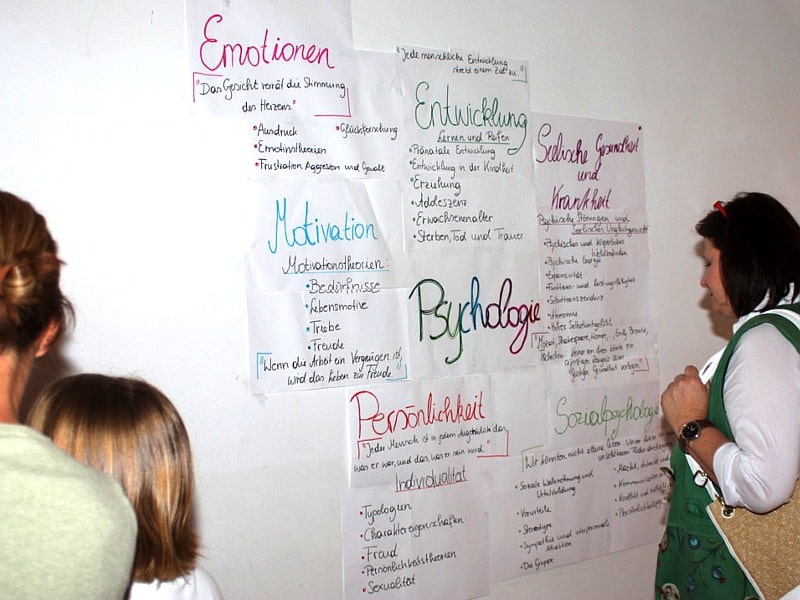 Emotionen
"Das Gesicht verrät die Stimmung
des Herzens."
• Ausdruck • Glücksforschung
• Emotionstheorien
• Frustration Aggression und Gewalt
"Jede menschliche Entwicklung
strebt einem Ziel zu."
Entwicklung
Lernen und Reifen
• Pränatale Entwicklung
• Entwicklung in der Kindheit
• Erziehung
• Adoleszenz
• Erwachsenenalter
• Sterben, Tod und Trauer
Seelische Gesundheit
und
Krankheit
Psychische Störungen und
Seelisches
• Psychisches und körperliches
Wohlbefinden
• Psychische Energie
• Expansivität
• Funktions- und Leistungsfähigkeit
• Selbsttranszendenz
• Autonomie
• Selbstwertgefühl
"Mozart, Shakespeare, Homer, Emily Bronte,
Motivation
Motivationstheorien:
• Bedürfnisse
• Lebensmotive
• Triebe
• Freude
"Wenn die Arbeit ein Vergnügen ist,
wird das Leben zur Freude."
Psychologie
Persönlichkeit
"Jeder Mensch ist in jedem Augenblick das,
was er war, und das, was er sein wird."
Individualität
• Typologien
• Charaktereigenschaften
• Freud
• Persönlichkeitstheorien
• Sexualität
Sozialpsychologie
"Wir könnten nicht alleine leben.
• Soziale Wahrnehmung und
Urteilsbildung
• Vorurteile
• Stereotype
• Sympathie und interpersonale
Attraktion
• Die Gruppe
• Macht,
• Kommunikation
• Konflikt und